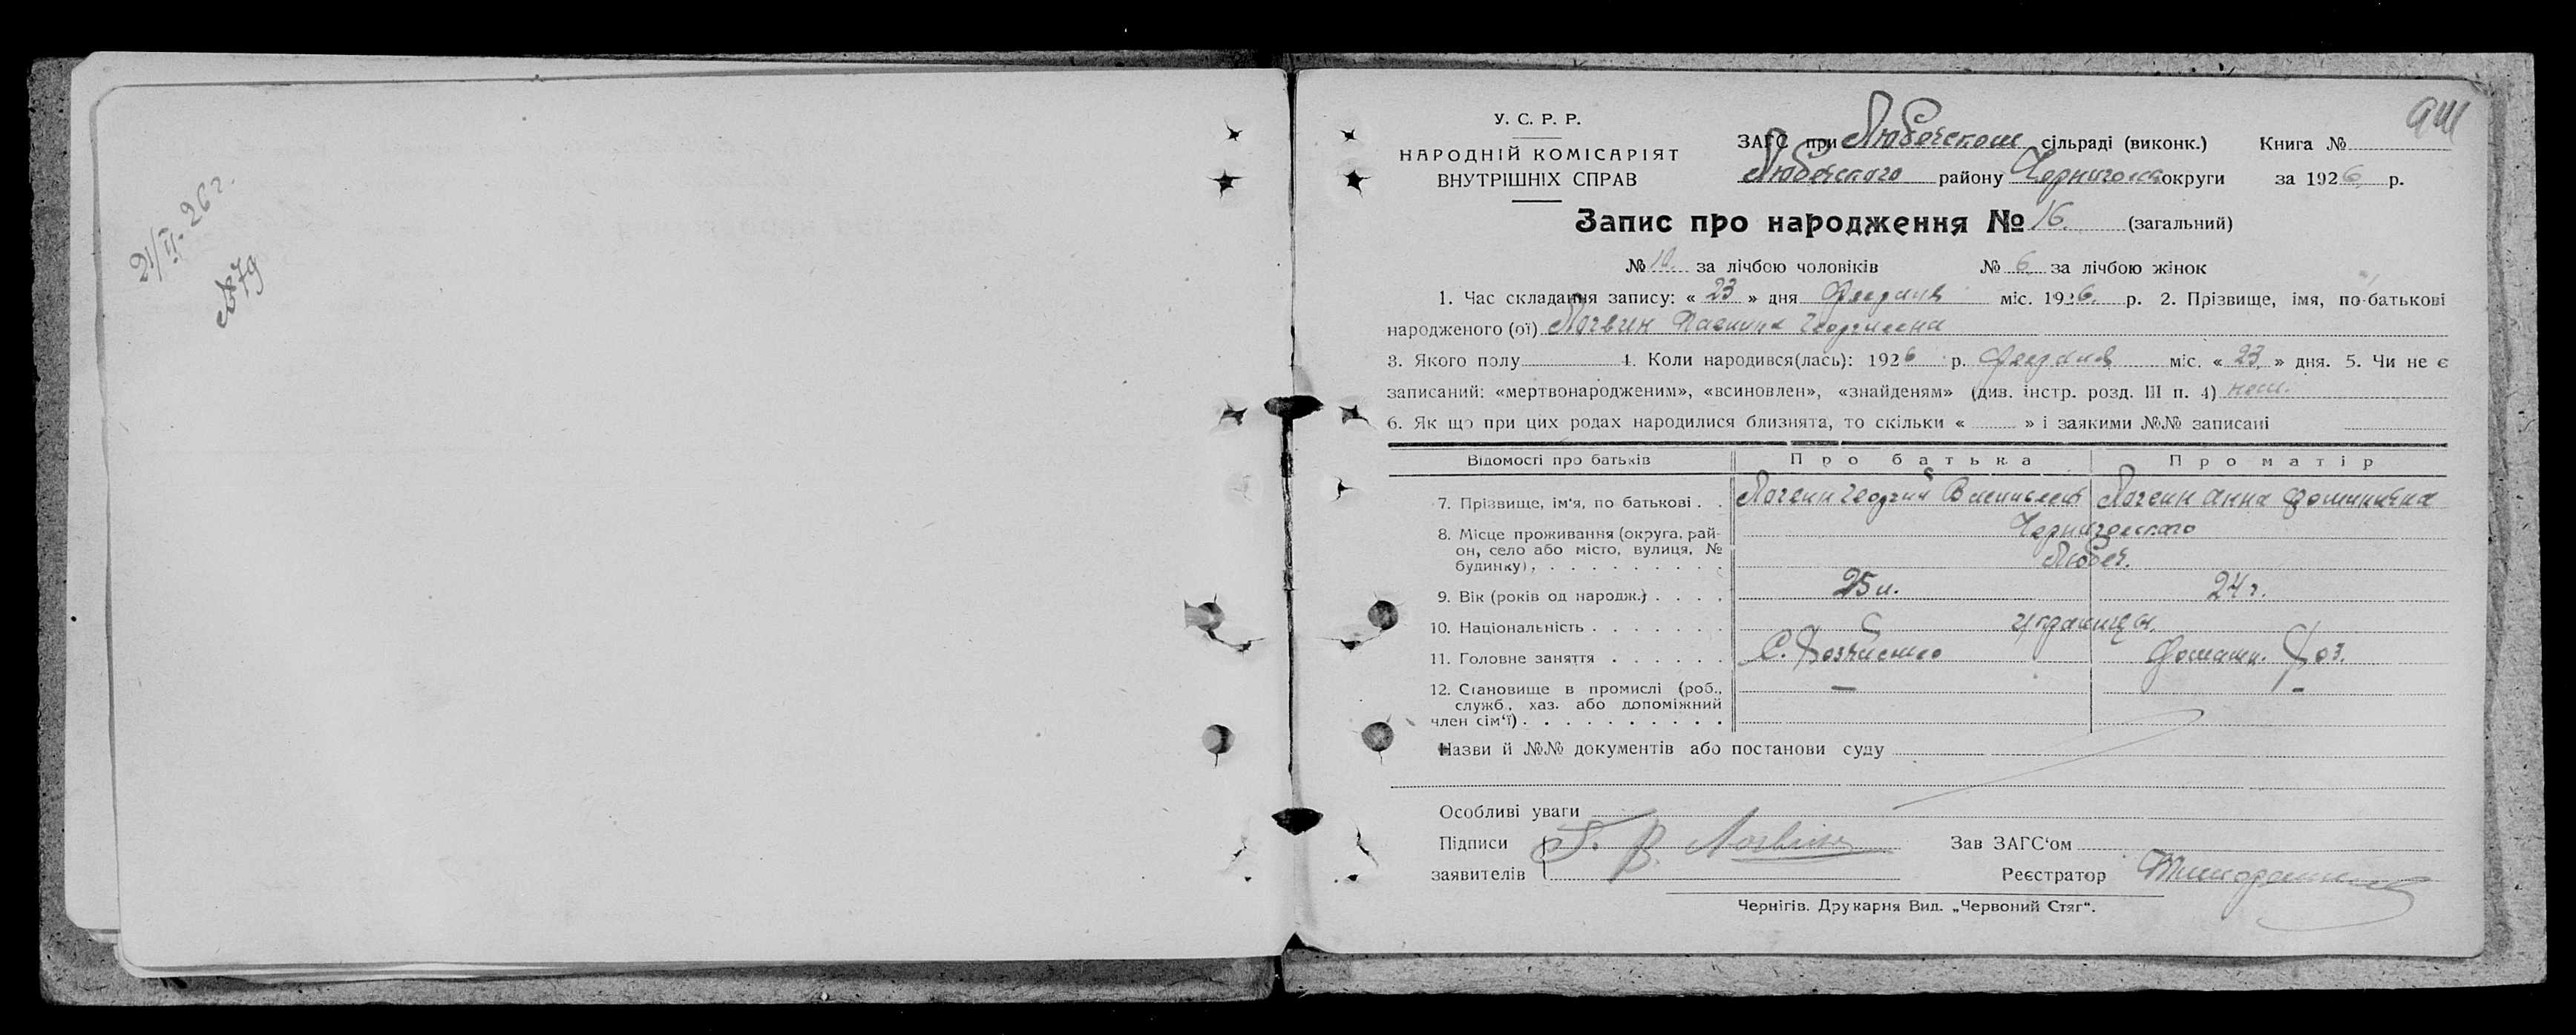 21/II-26 г.
№79
У. С. Р. Р.
НАРОДНІЙ КОМІСАРІЯТ
ВНУТРІШНІХ СПРАВ
ЗАГС при Любечском сільраді (виконк.) Книга №
Любечского району округи за 1926 р.
Запис про народження № 16. (загальний)
№ 10 за лічбою чоловіків № 6 за лічбою жінок
1. Час складання запису: « 23 » дня міс. 1926. р. 2. Прізвище, імя, по-батькові
народженого (ої) Логвин Георгиевна
3. Якого полу 4. Коли народився(лась): 1926 р. міс. « 23 » дня. 5. Чи не є
записаний: «мертвонародженим», «всиновлен», «знайденям» (див. інстр. розд. III п. 4) нет.
6. Як що при цих родах народилися близнята, то скільки « » і заякими №№ записані
Відомості про батьків Про батька Про матір
7. Прізвище, ім'я, по батькові . . Логвин Георгий Васильевич Логвин Анна
8. Місце проживання (округа, рай- Черниговского
он, село або місто, вулиця, №
будинку), . . . . . . . . . Любеч.
9. Вік (років од народж.) . . . . 25 л. 24 г.
10. Національність . . . . . . . украинцы.
11. Головне заняття . . . . . . С. Хозяйство Домашн. Хоз.
12. Становище в промислі (роб., — –
служб, хаз. або допоміжний
член сім'ї) . . . . . . . . . .
Назви й №№ документів або постанови суду
Особливі уваги
Підписи Г. В. Логвин Зав ЗАГС'ом
заявителів Реєстратор
Чернігів. Друкарня Вид. „Червоний Стяг“.